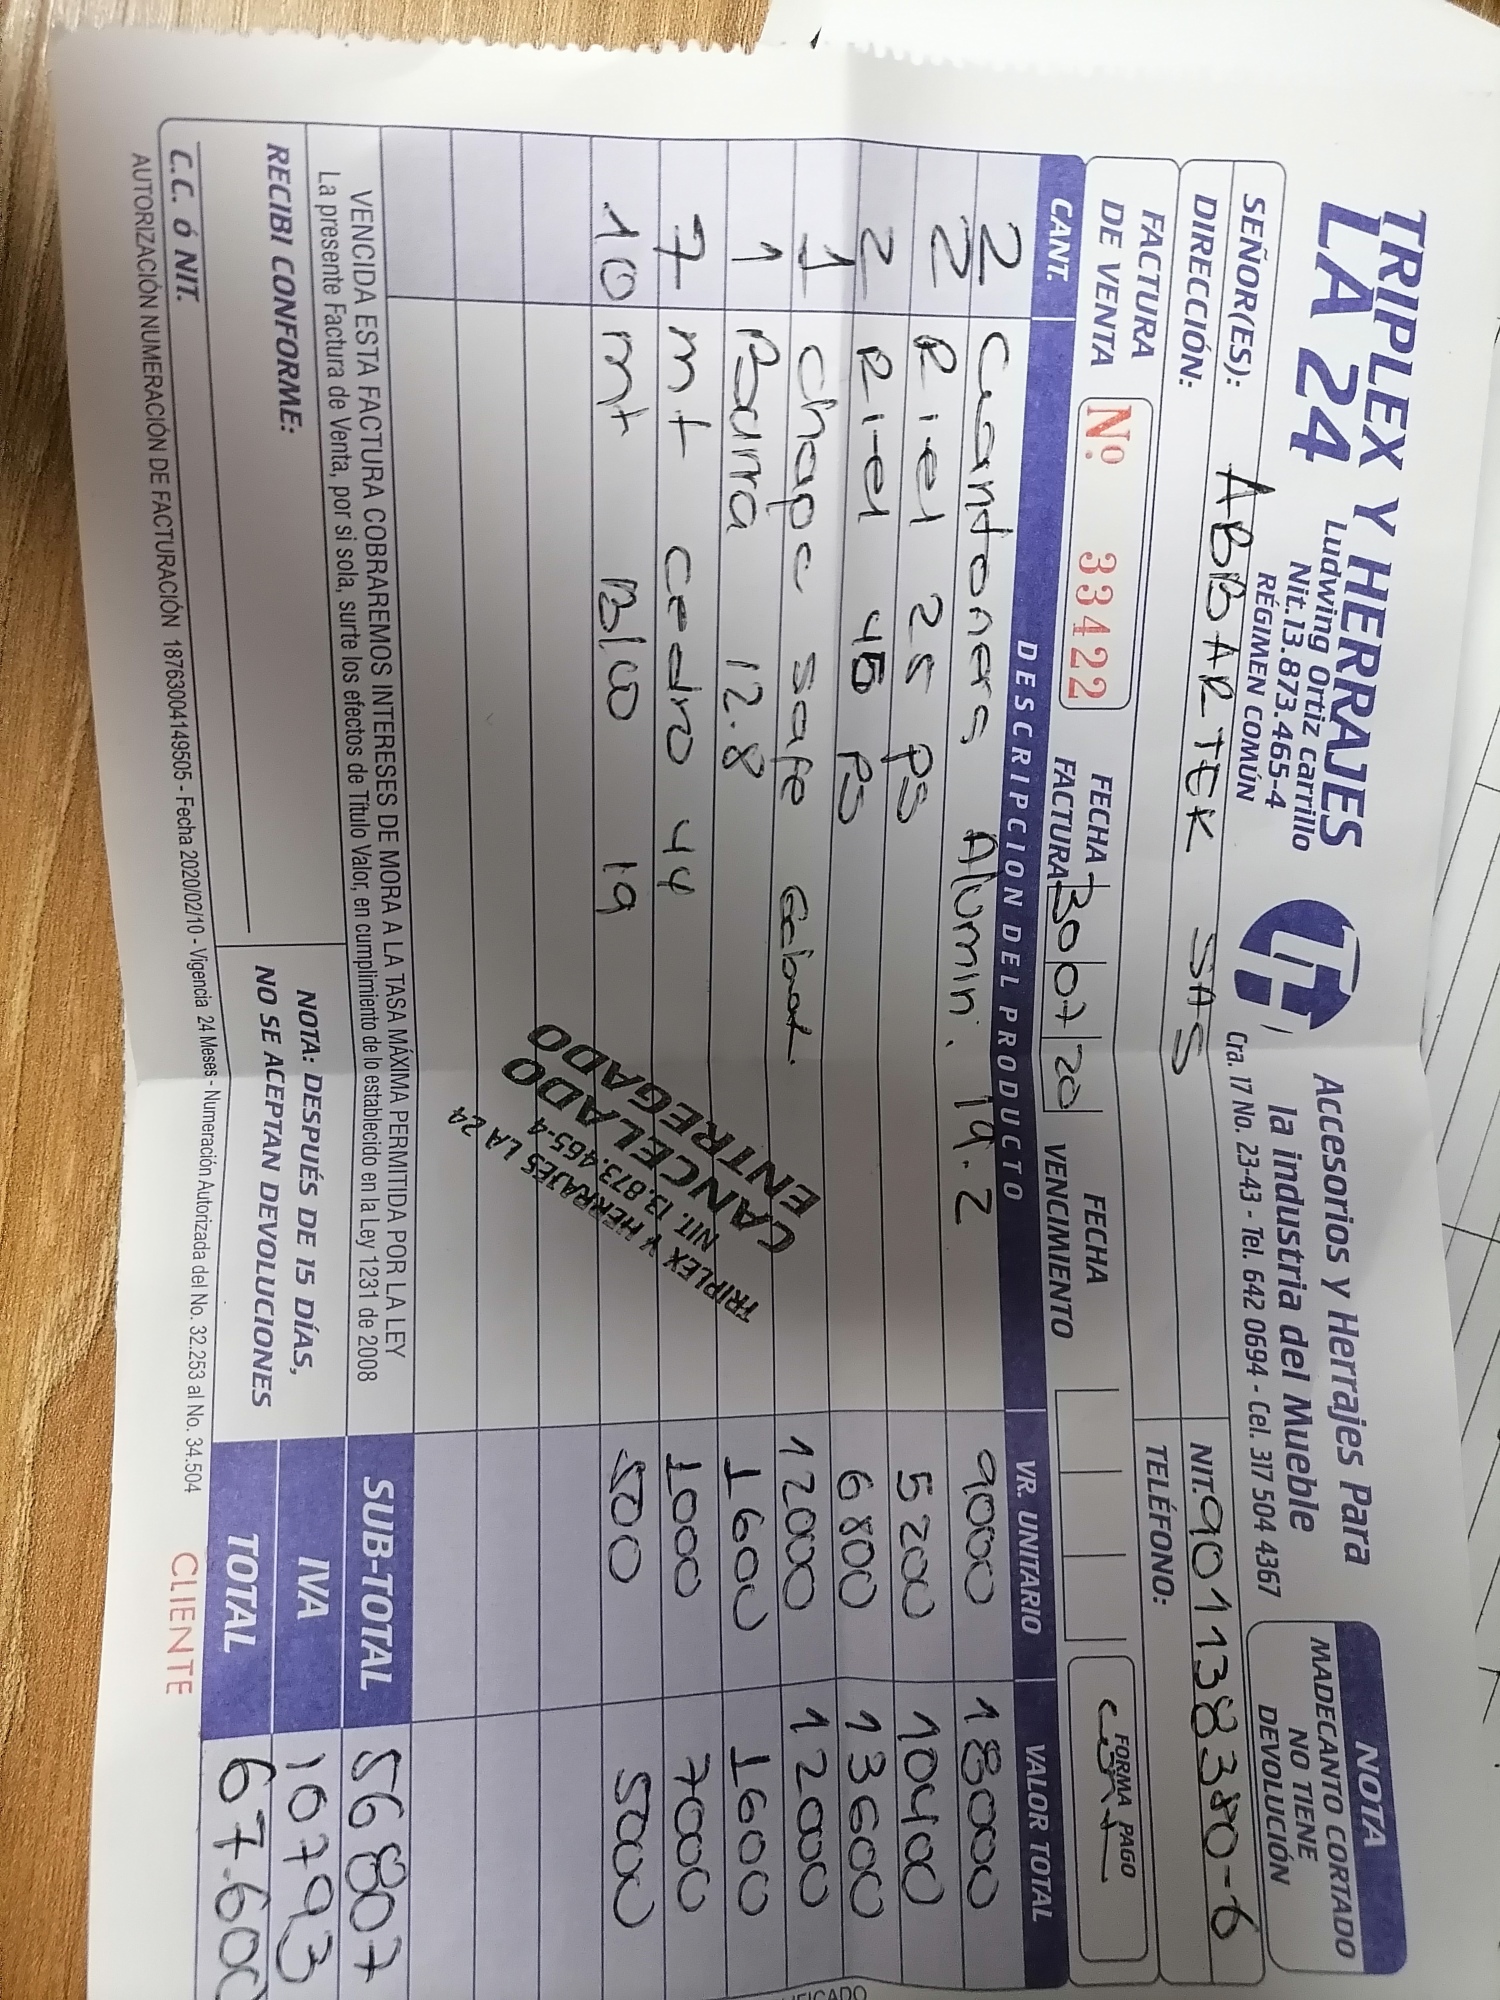 TRIPLEX Y HERRAJES
LA 24
Ludwing Ortiz Carrillo
Nit.13.873.465-4
RÉGIMEN COMÚN
TH
Accesorios y Herrajes Para
la industria del Mueble
Cra. 17 No. 23-43 - Tel. 642 0694 - Cel. 317 504 4367
NOTA
MADECANTO CORTADO
NO TIENE
DEVOLUCIÓN
SEÑOR(ES): ABBARTEK SAS
NIT. 901138380-6
DIRECCIÓN:
TELÉFONO:
FACTURA
DE VENTA
Nº 33422
FECHA
FACTURA
30 07 20
FECHA
VENCIMIENTO
FORMA PAGO
CANT. DESCRIPCION DEL PRODUCTO VR. UNITARIO VALOR TOTAL
2 Cantonera Alumin. 19.2 9000 18000
2 Riel 25 ps 5200 10400
2 Riel 45 ps 6800 13600
1 chapa safe 12000 12000
1 Barra 12.8 1600 1600
7 mt cedro 44 1000 7000
10 mt Blco 19 500 5000
ENTREGADO
CANCELADO
NIT. 13.873.465-4
TRIPLEX Y HERRAJES LA 24
VENCIDA ESTA FACTURA COBRAREMOS INTERESES DE MORA A LA TASA MÁXIMA PERMITIDA POR LA LEY
La presente Factura de Venta, por si sola, surte los efectos de Título Valor, en cumplimiento de lo establecido en la Ley 1231 de 2008
SUB-TOTAL 56807
IVA 10793
TOTAL 67.600
RECIBI CONFORME:
C.C. ó NIT.
NOTA: DESPUÉS DE 15 DÍAS,
NO SE ACEPTAN DEVOLUCIONES
AUTORIZACIÓN NUMERACIÓN DE FACTURACIÓN 18763004149505 - Fecha 2020/02/10 - Vigencia 24 Meses - Numeración Autorizada del No. 32.253 al No. 34.504
CLIENTE